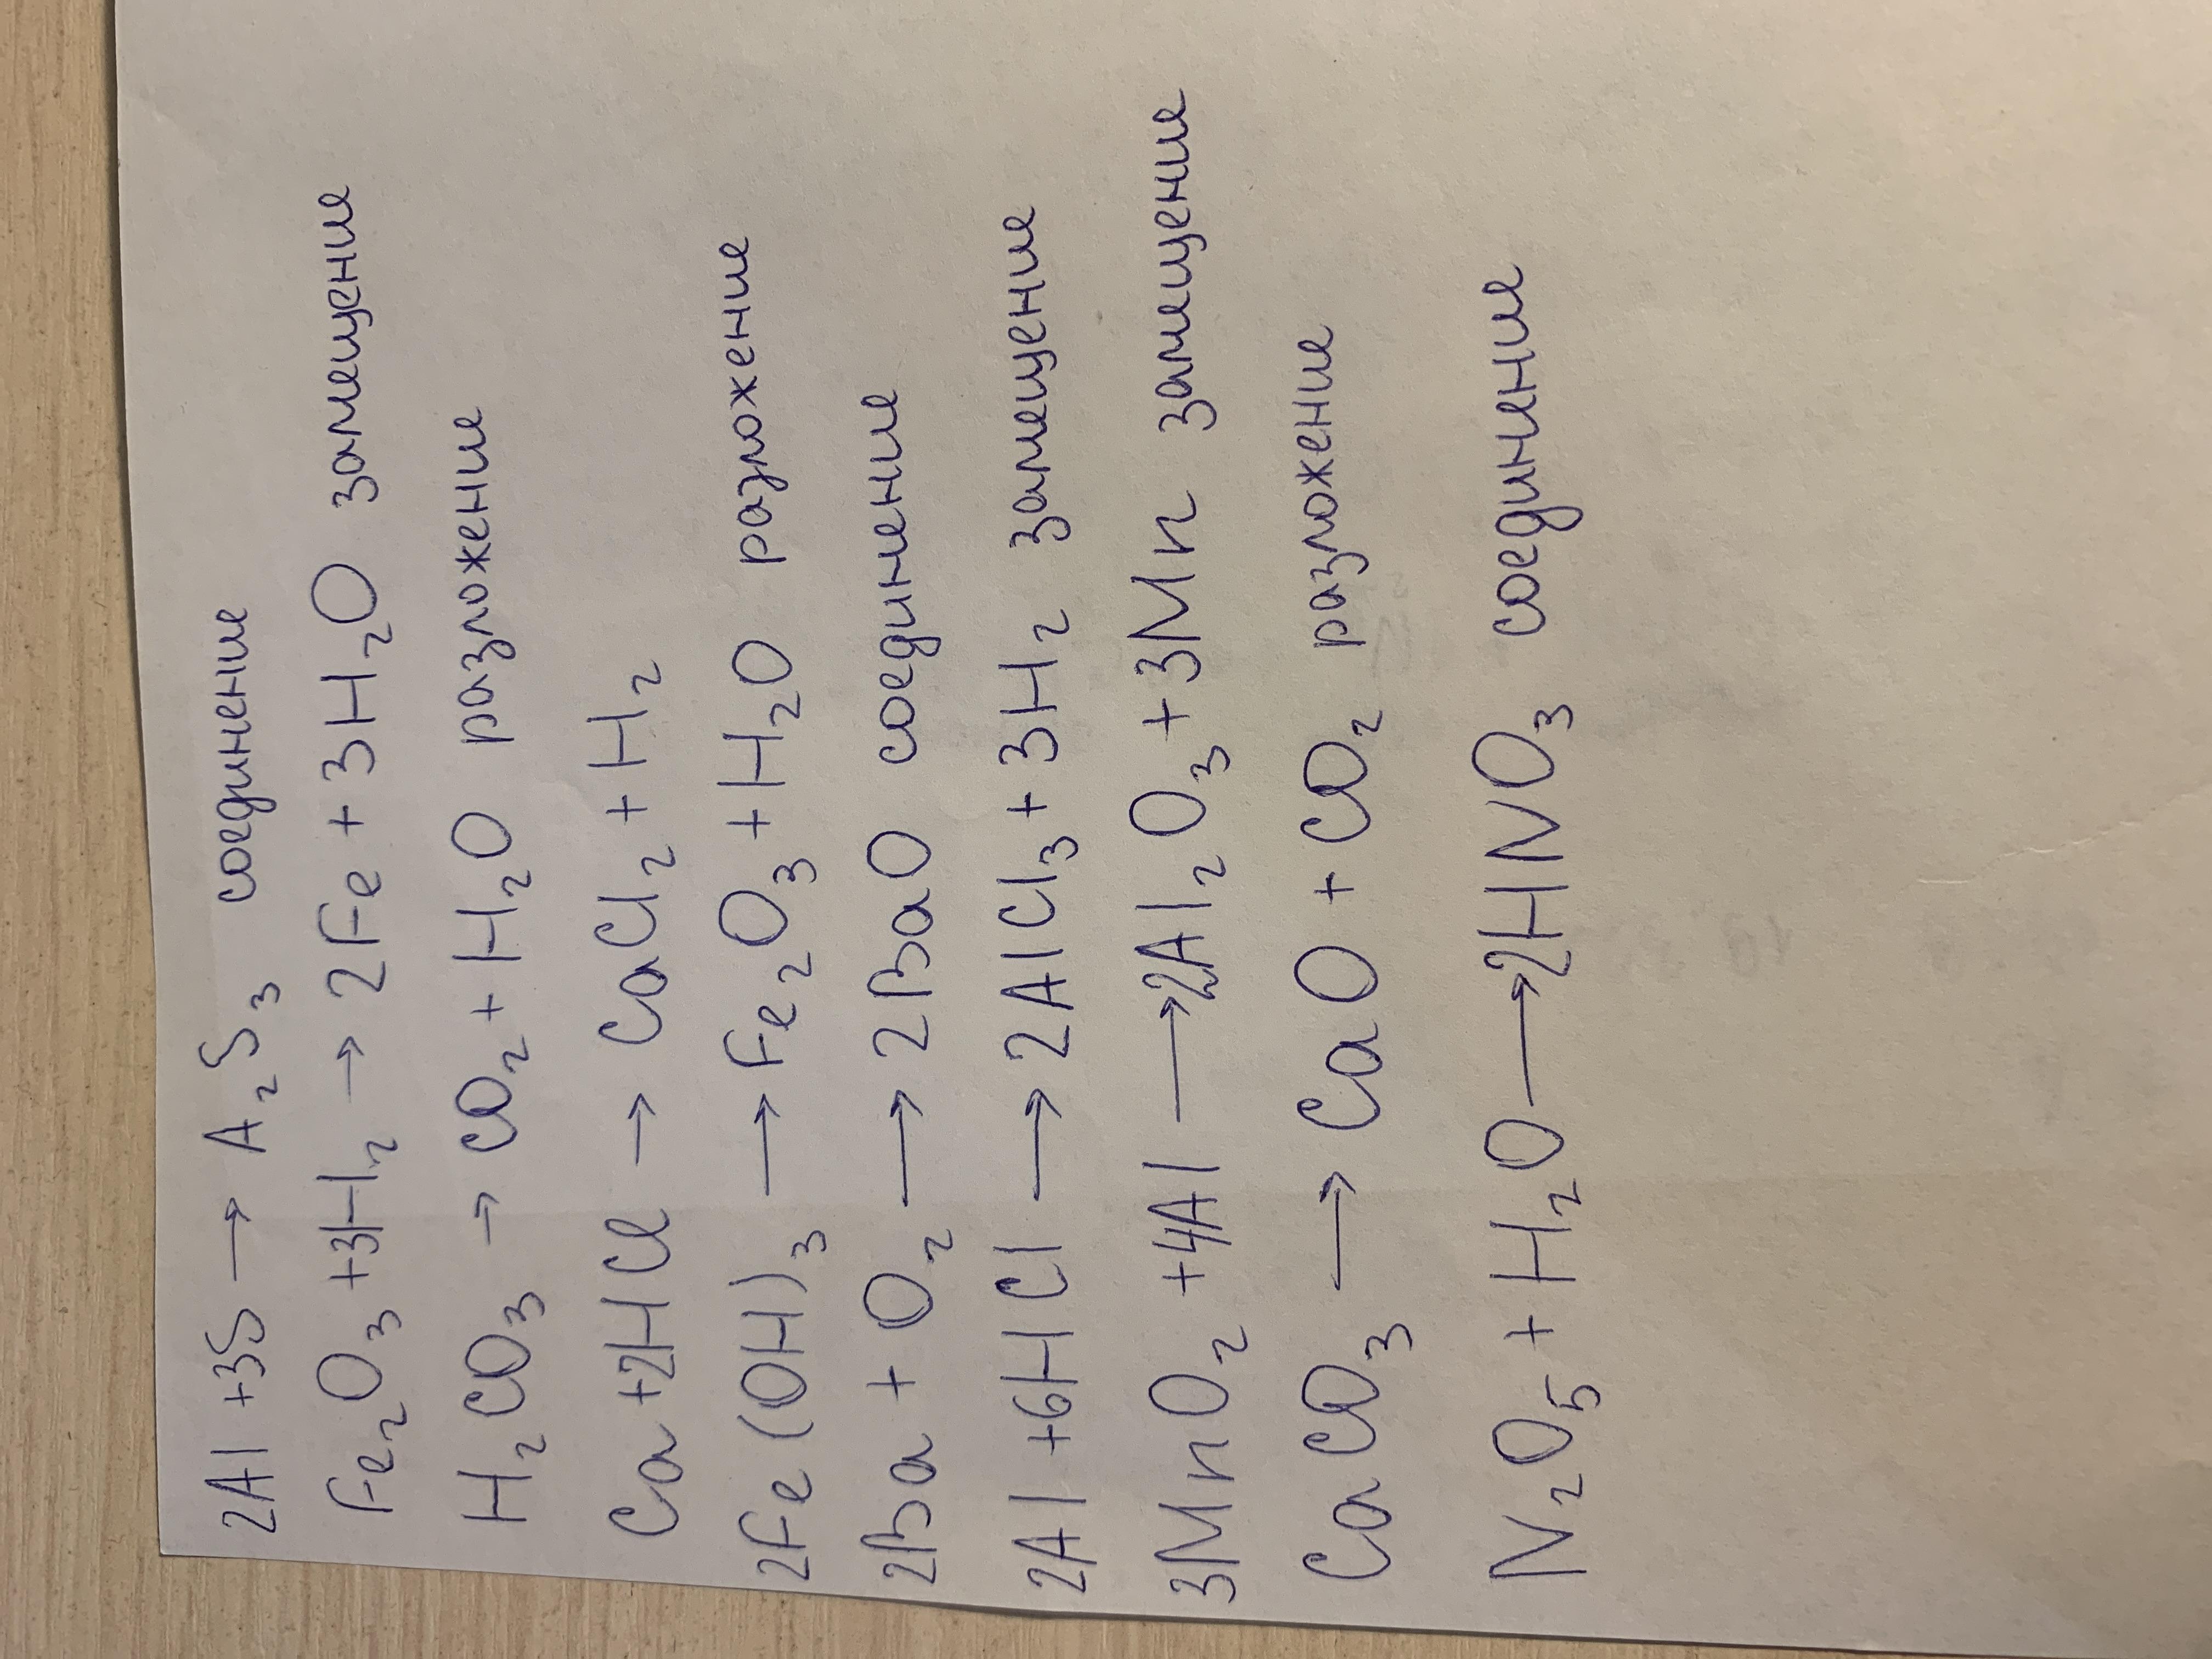 2Al +3S → A₂S₃ соединение
Fe₂O₃ +3H₂ → 2Fe + 3H₂O замещение
H₂CO₃ → CO₂ + H₂O разложение
Ca +2HCl → CaCl₂ + H₂
2Fe(OH)₃ → Fe₂O₃ + H₂O разложение
2Ba + O₂ → 2BaO соединение
2Al +6HCl → 2AlCl₃ + 3H₂ замещение
3MnO₂ +4Al → 2Al₂O₃ + 3Mn замещение
CaCO₃ → CaO + CO₂ разложение
N₂O₅ + H₂O → 2HNO₃ соединение